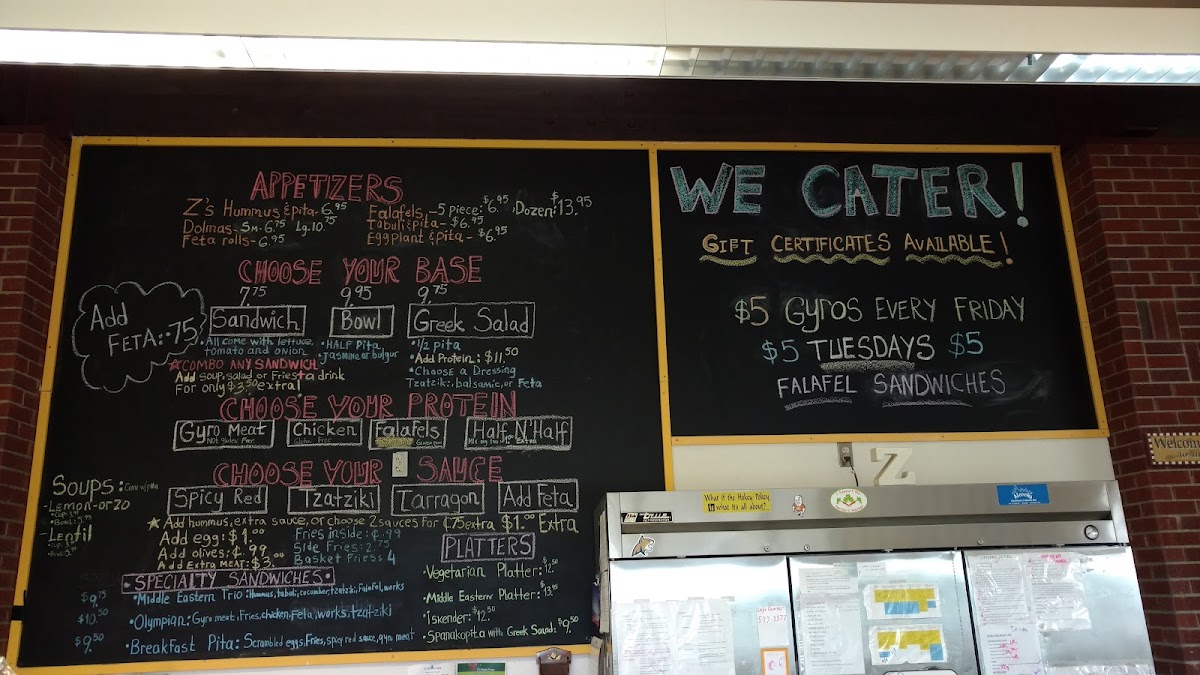 APPETIZERS
Z's Hummus & pita - 6.95
Dolmas - Sm - 6.75 Lg. 10.75
Feta rolls - 6.95
Falafels, - 5 piece: $6.95, Dozen: $13.95
Tabuli & pita - $6.95
Eggplant & pita - $6.95
CHOOSE YOUR BASE
7.75 9.95 9.75
Sandwich Bowl Greek Salad
Add
FETA: .75
•All come with lettuce,
tomato and onion
•HALF Pita
•jasmine or bulgur
•1/2 pita
•Add Protein: $11.50
*Choose a Dressing
Tzatziki, balsamic, or Feta
☆COMBO ANY SANDWICH
Add soup, salad or Fries + a drink
For only $3.50 extra!
CHOOSE YOUR PROTEIN
Gyro Meat Chicken Falafels Half N' Half
CHOOSE YOUR SAUCE
Spicy Red Tzatziki Tarragon Add Feta
☆Add hummus, extra sauce, or choose 2 sauces for ¢75 extra $1.00 Extra
Add egg: $1.00
Add olives: ¢.99
Add Extra MEAT: $3.
Fries inside: ¢.99
Side Fries: 2.75
Basket Fries: 4
SOUPS:
-Lemon-orzo
-Lentil
PLATTERS
•Vegetarian Platter: $12.50
•Middle Eastern Platter: $13.95
•Iskender: $12.50
•Spanakopita with Greek Salad: $9.50
•SPECIALTY SANDWICHES•
$9.75 •Middle Eastern Trio: Hummus, tabuli, cucumber, tzatziki, Falafel, works
$10.50 •Olympian: Gyro meat, Fries, chicken, Feta, works, tzatziki
$9.50 •Breakfast Pita: Scrambled eggs, Fries, spicy red sauce, gyro meat
WE CATER!
GIFT CERTIFICATES AVAILABLE!
$5 Gyros EVERY FRIDAY
$5 TUESDAYS $5
FALAFEL SANDWICHES
Z
Welcome
What if the Hokey Pokey
is what it's all about?
true